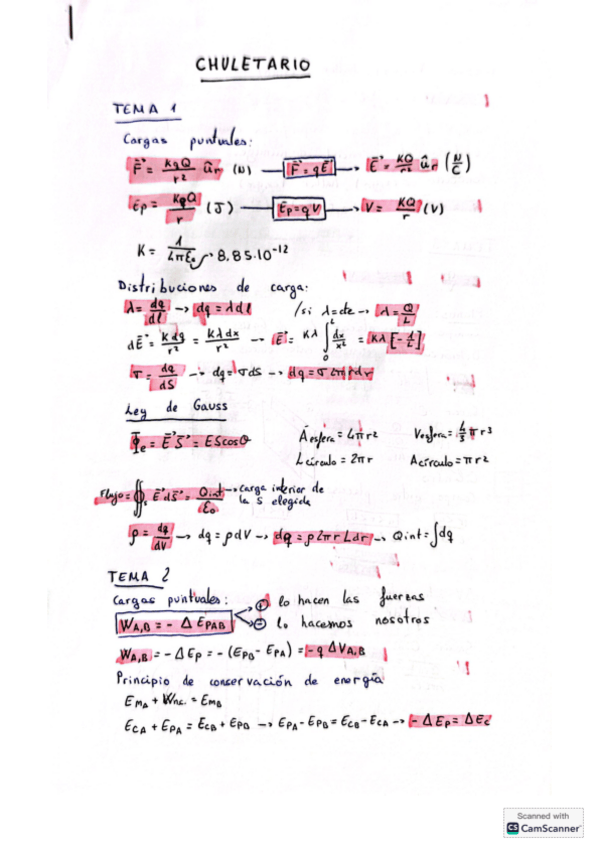 CHULETARIO
TEMA 1
Cargas puntuales:
F⃗ = KqQ/r² ûr (N) → F⃗ = qE⃗ → E⃗ = KQ/r² ûr (N/C)
Ep = KqQ/r (J) → Ep = qV → V = KQ/r (V)
K = 1/4πε₀ → 8.85·10⁻¹²
Distribuciones de carga:
λ = dq/dl → dq = λdl /si λ=cte → λ = Q/L
dE⃗ = Kdq/r² = Kλdx/r² → E⃗ = Kλ ∫₀ᴸ dx/x² = Kλ[-1/L]
σ = dq/dS → dq = σdS → dq = σ2πrdr
Ley de Gauss
Φe = E⃗·S⃗ = EScosθ
A esfera = 4πr² V esfera = 4/3 πr³
L círculo = 2πr A círculo = πr²
Flujo = ∮ E⃗dS⃗ = Qint/ε₀ → carga interior de la S elegida
ρ = dq/dV → dq = ρdV → dq = ρ2πrLdr → Qint = ∫dq
TEMA 2
Cargas puntuales:
W A,B = - ΔEPAB
⊕ lo hacen las fuerzas
⊖ lo hacemos nosotros
W A,B = - ΔEP = - (EPB - EPA) = -qΔV A,B
Principio de conservación de energía
EMA + Wnc. = EMB
ECA + EPA = ECB + EPB → EPA - EPB = ECB - ECA → -ΔEP = ΔEC
Scanned with
CS CamScanner